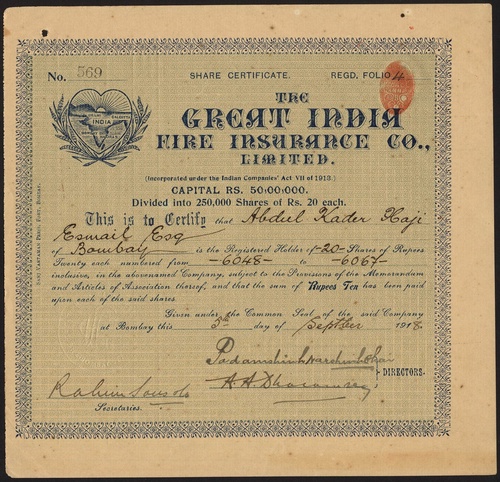 No. 569
SHARE CERTIFICATE.
REGD. FOLIO 4
INDIA
THE
GREAT INDIA
FIRE INSURANCE CO.,
LIMITED.
(Incorporated under the Indian Companies' Act VII of 1913.)
CAPITAL RS. 50,00,000.
Divided into 250,000 Shares of Rs. 20 each.
This is to Certify that Abdul Kader Haji
Esmail Esq
of Bombay is the Registered Holder of -20- Shares of Rupees
Twenty each numbered from -6048- to -6067-
inclusive, in the abovenamed Company, subject to the Provisions of the Memorandum
and Articles of Association thereof, and that the sum of Rupees Ten has been paid
upon each of the said shares.
Given under the Common Seal of the said Company
at Bombay this 5th day of September 1918
DIRECTORS.
Secretaries.